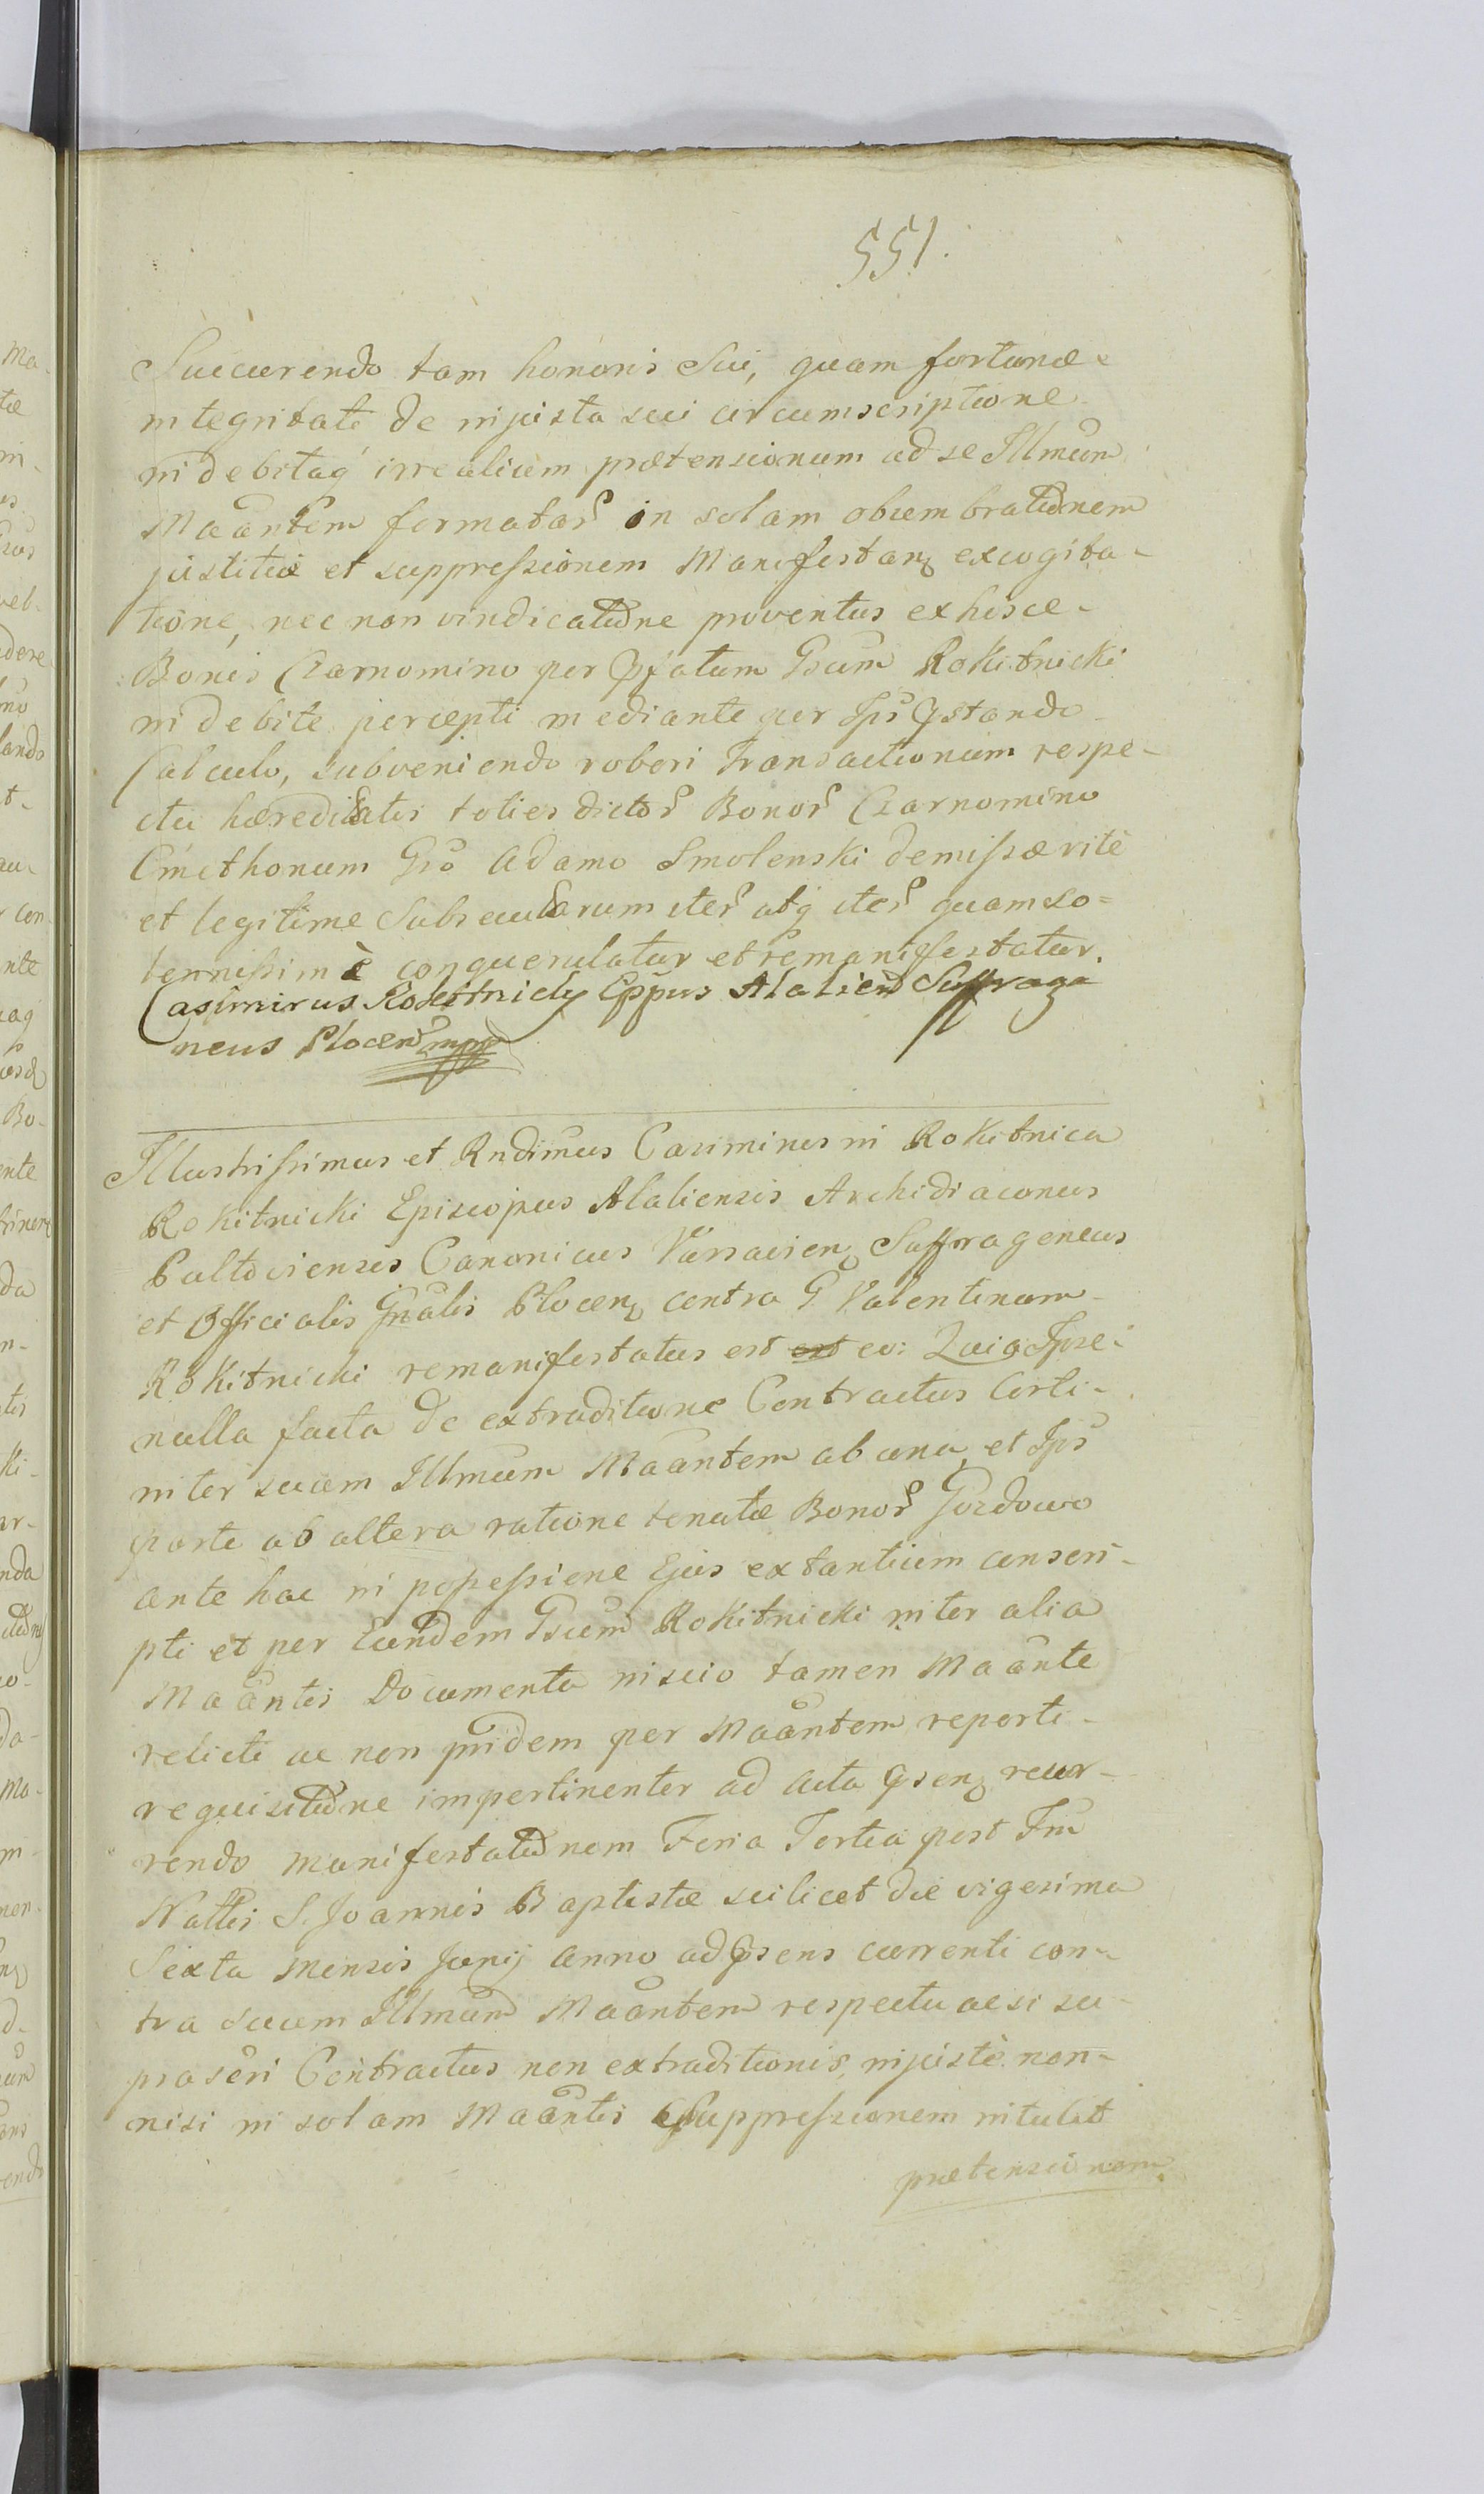 551.
Succurendo tam honoris Sui, quam fortunæ
integritati de injusta sui circumscriptione
indebitaq irrealium prætensionum ad se Illmum
Maantem formatar in solam obumbrationem
justitiæ et suppressionem Manifestan excogita-
tione, nec non vindicatione proventus ex hisce
Bonis Czarnomino per Pfatum Gsum Rokitnicki
indebite percepti mediante per Ips Pstando
Calculo, subveniendo robori Transactionum respe-
ctu hæreditatis toties dictor Bonor Czarnomino
Cmethonum Gso Adamo Smolenski demissæ ritè
et legitime Subsecutarum iter atq iter quam so=
lennissimè conquerulatur et remanifestatur.
Casimirus Rokitnicky Eppus Alalien Suffraga
neus Plocen mpp
Illustrissimus et Rndimus Casimirus in Rokitnica
Rokitnicki Episcopus Alaliensis Archidiaconus
Pultoviensis Canonicus Varsavien Suffraganeus
et Officialis Gnalis Plocen contra G Valentinum
Rokitnicki remanifestatus est est eo: Quia Ipse
nulla facta de extraditione Contractus Certi
inter suam Illmum Maantem ab una, et Ips
parte ab altera ratione tenutæ Bonor Gozdowo
ante hac in possessione Ejus extantium conscri-
pti et per Eundem Gsum Rokitnicki inter alia
Maantis Documenta inscio tamen Maante
relicti ac non pridem per Maantem reperti
requisitione impertinenter ad Acta Psen recur-
rendo manifestationem Feria Tertia post Fm
Nattis S. Joannis Baptistæ scilicet die vigesima
Sexta mensis Junij Anno ad Psens currenti con-
tra suum Illmum Maantem respectu acsi su-
praseri Contractus non extraditionis, injustè non-
nisi in solam Maantis Suppressionem intulit
prætensionem